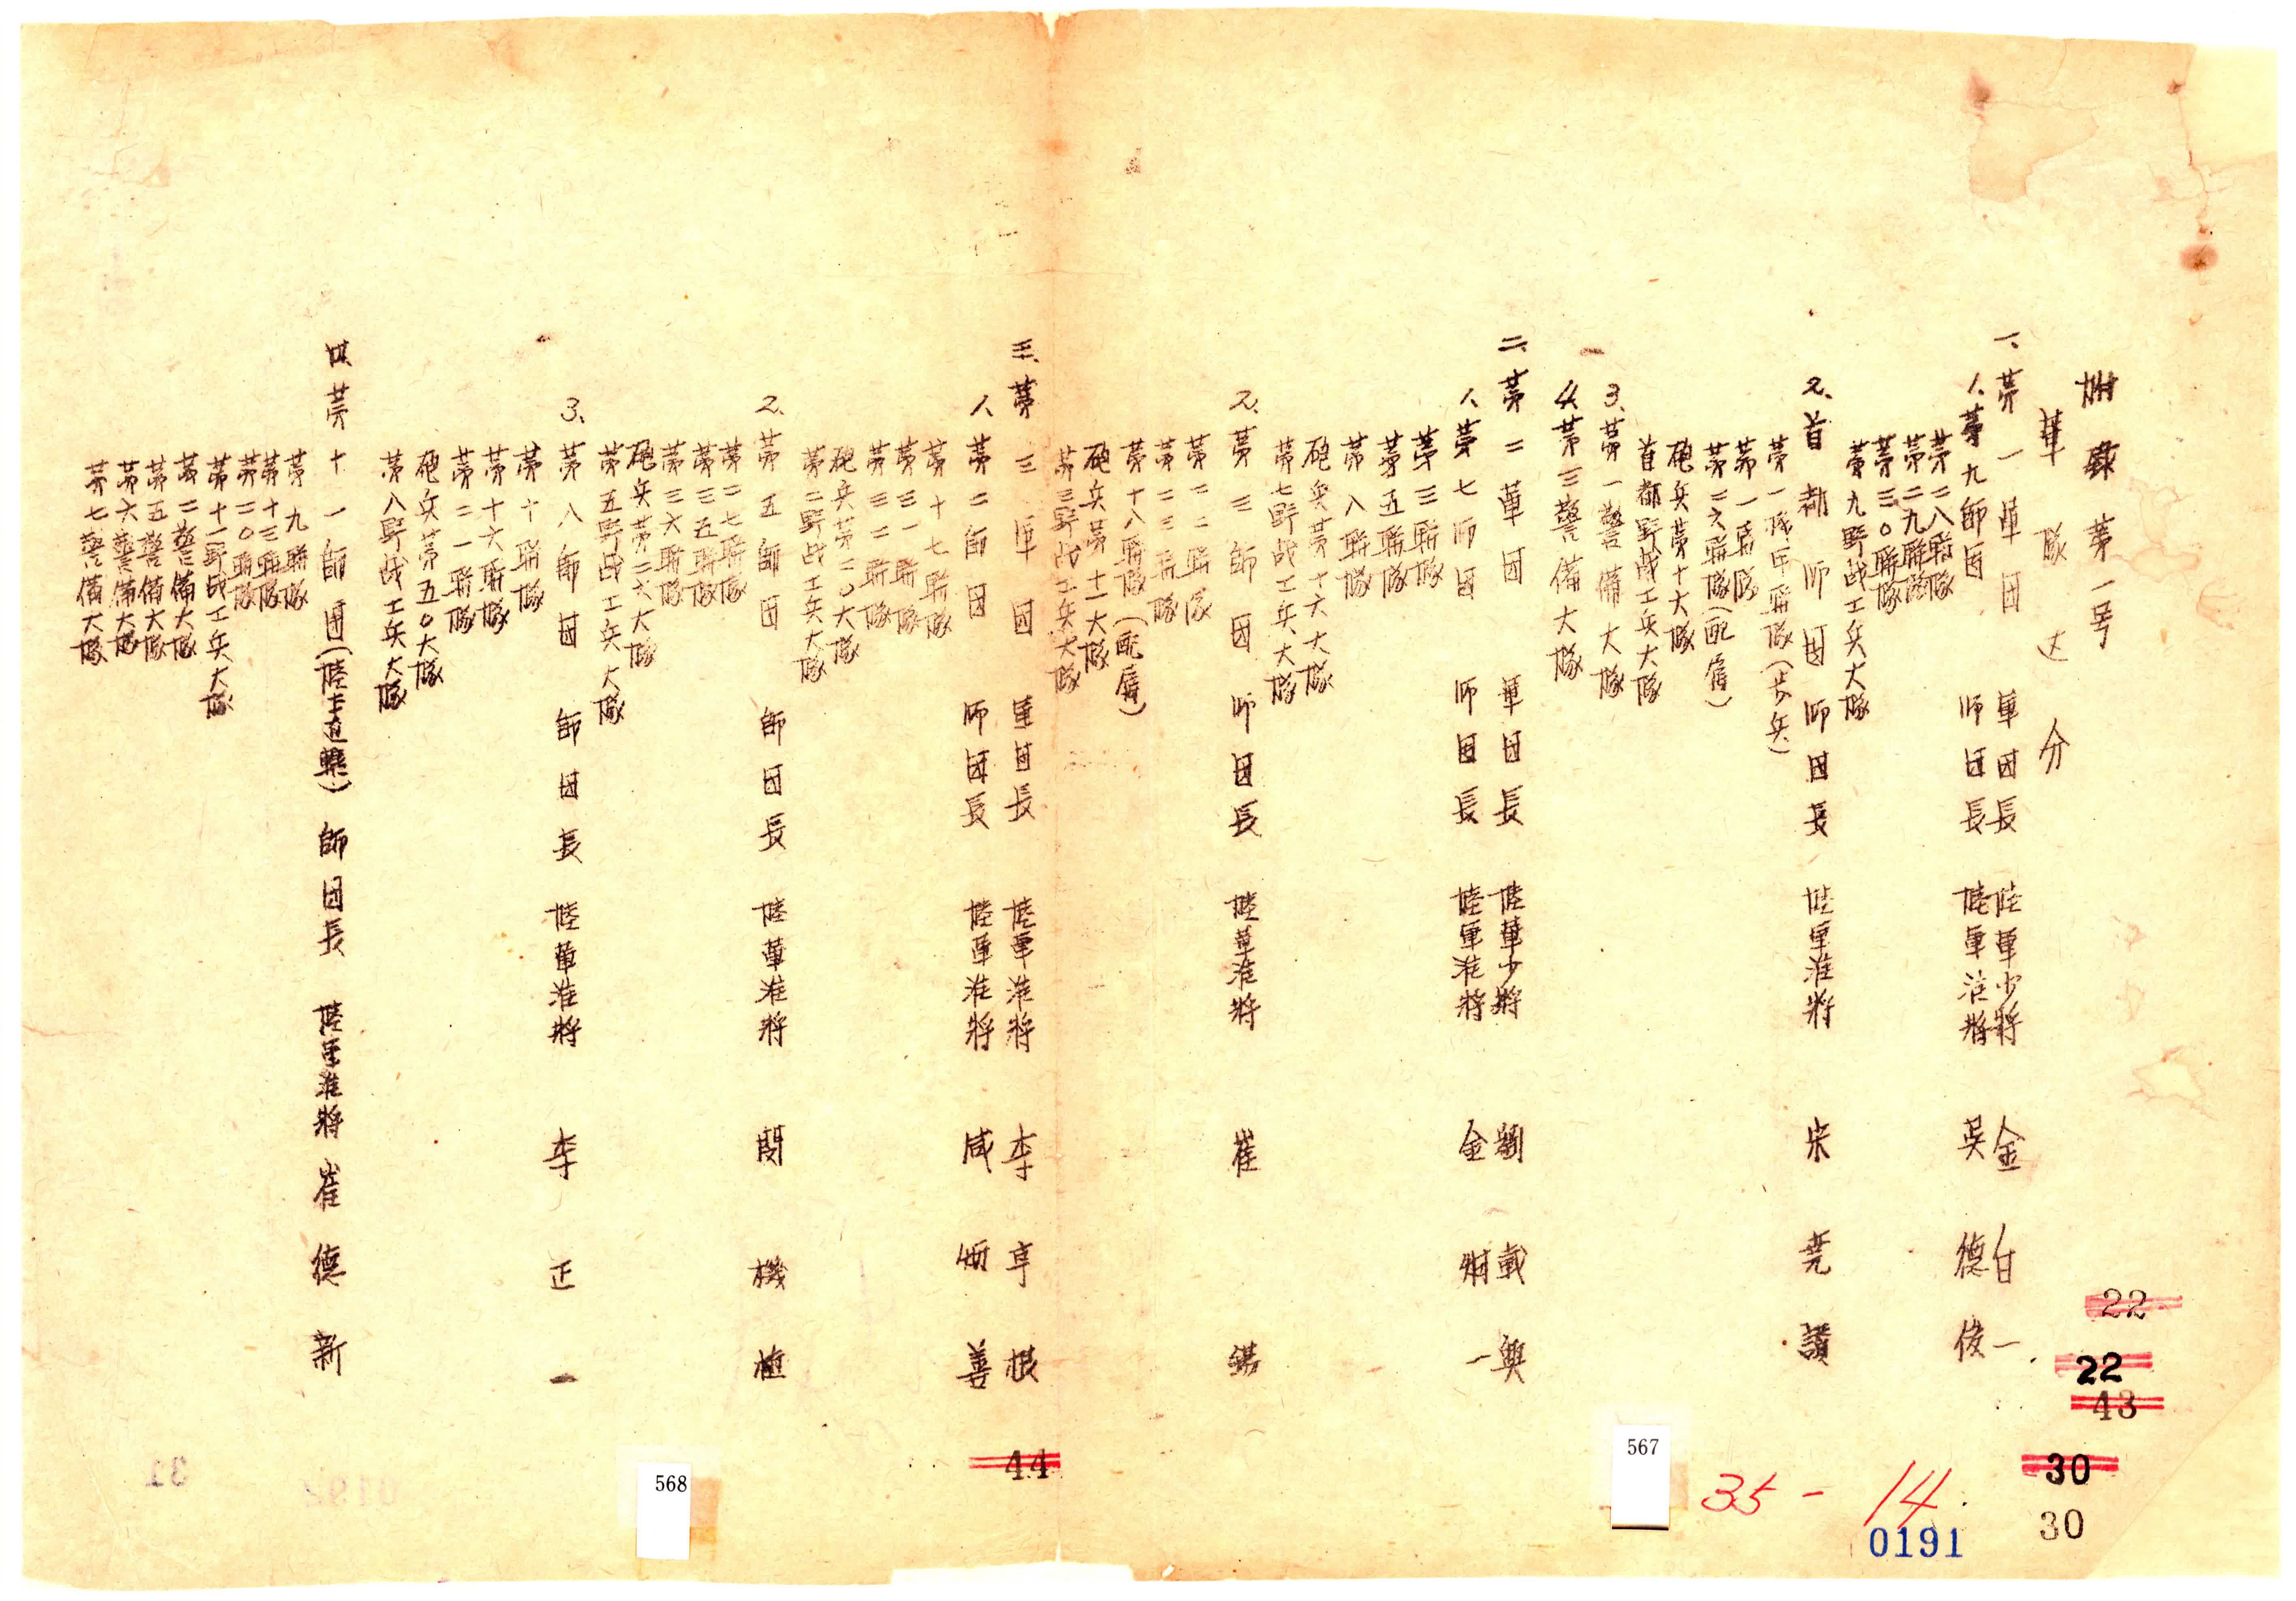 附錄 第一号
軍隊区分
一、第一軍団 軍団長 陸軍少將 金白一
1、第九師団 師団長 陸軍准將 吳德俊
第二八聯隊
第二九聯隊
第三〇聯隊
第九野战工兵大隊
2、首都師団 師団長 陸軍准將 宋堯讚
第一機甲聯隊(步兵)
第一聯隊
第二六聯隊(配屬)
砲兵第十大隊
首都野战工兵大隊
3、第一警備大隊
4、第三警備大隊
二、第二軍団 軍団長 陸軍少將 劉載興
1、第七师団 师団長 陸軍准將 金炯一
第三聯隊
第五聯隊
第八聯隊
砲兵第十六大隊
第七野战工兵大隊
2、第三師団 师団長 陸軍准將 崔錫
第二二聯隊
第二三聯隊
第十八聯隊(配屬)
砲兵第十一大隊
第三野战工兵大隊
三、第三軍団 軍団長 陸軍准將 李亨根
1、第二師団 师団長 陸軍准將 咸炳善
第十七聯隊
第三一聯隊
第三二聯隊
砲兵第二〇大隊
第二野战工兵大隊
2、第五師団 師団長 陸軍准將 閔機植
第二七聯隊
第三五聯隊
第三六聯隊
砲兵第二六大隊
第五野战工兵大隊
3、第八師団 師団長 陸軍准將 李正一
第十聯隊
第十六聯隊
第二一聯隊
砲兵第五〇大隊
第八野战工兵大隊
四、第十一師団(陸本直轄) 師団長 陸軍准將 崔德新
第九聯隊
第十三聯隊
第二〇聯隊
第十一野战工兵大隊
第二警備大隊
第五警備大隊
第六警備大隊
第七警備大隊
22
22
43
30
30
35-14
0191
567
44
568
0192
31